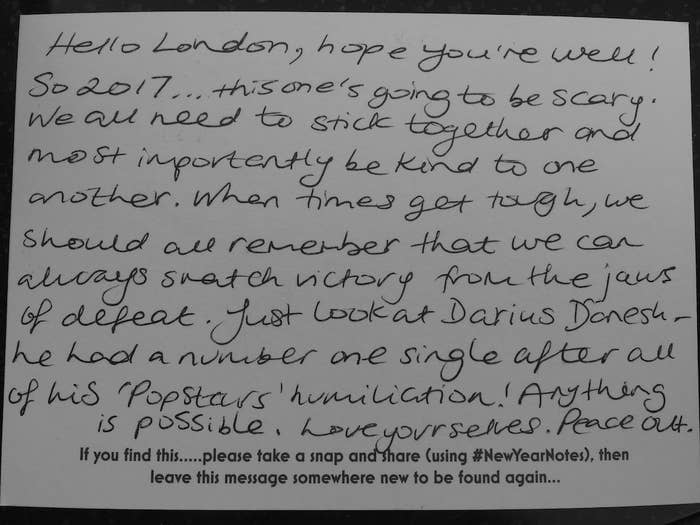 Hello London, hope you're well!
So 2017... this one's going to be scary.
We all need to stick together and
most importently be kind to one
another. When times get tough, we
should all remember that we can
always snatch victory from the jaws
of defeat. Just look at Darius Danesh -
he had a number one single after all
of his 'Popstars' humiliation! Anything
is possible. Love yourselves. Peace out.
If you find this.....please take a snap and share (using #NewYearNotes), then
leave this message somewhere new to be found again...